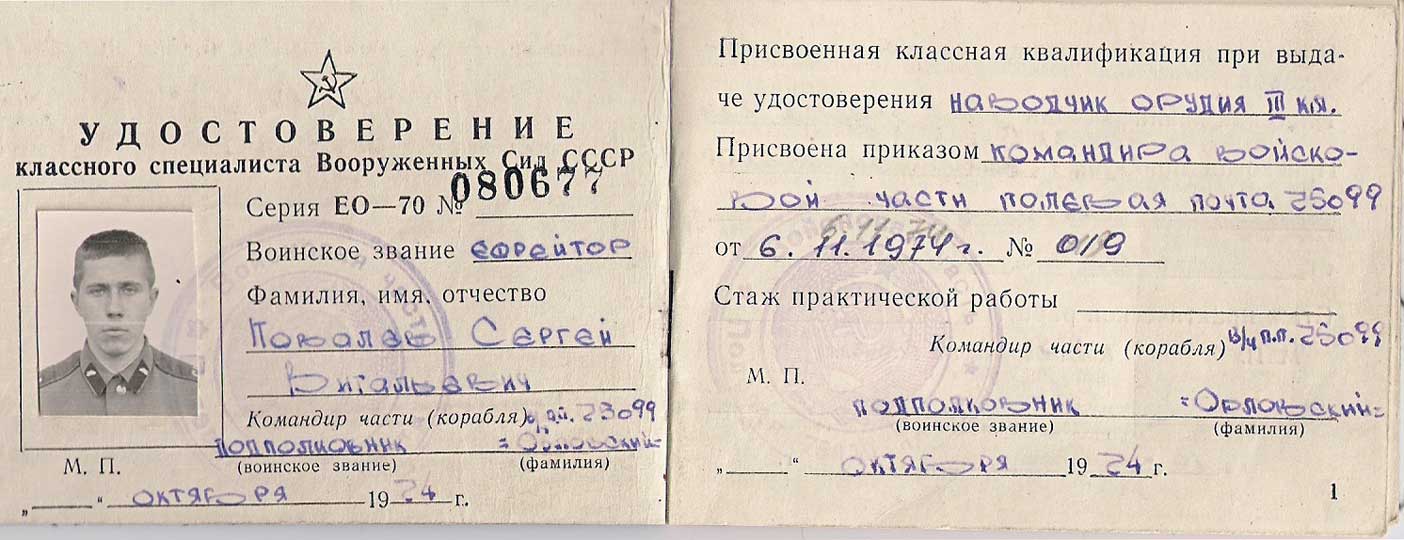 УДОСТОВЕРЕНИЕ
классного специалиста Вооруженных Сил СССР
Серия ЕО—70 № 080677
Воинское звание ефрейтор
Фамилия, имя, отчество
Поволяев Сергей
Витальевич
Командир части (корабля) в/ч п.п. 25099
подполковник =Орловский=
(воинское звание) (фамилия)
М. П.
„ “ октября 1974 г.
Присвоенная классная квалификация при выда-
че удостоверения наводчик орудия III кл.
Присвоена приказом командира войско-
вой части полевая почта 25099
от 6.11.1974 г. № 019
Стаж практической работы
Командир части (корабля) в/ч п.п. 25099
М. П.
подполковник =Орловский=
(воинское звание) (фамилия)
„ “ октября 1974 г.
1